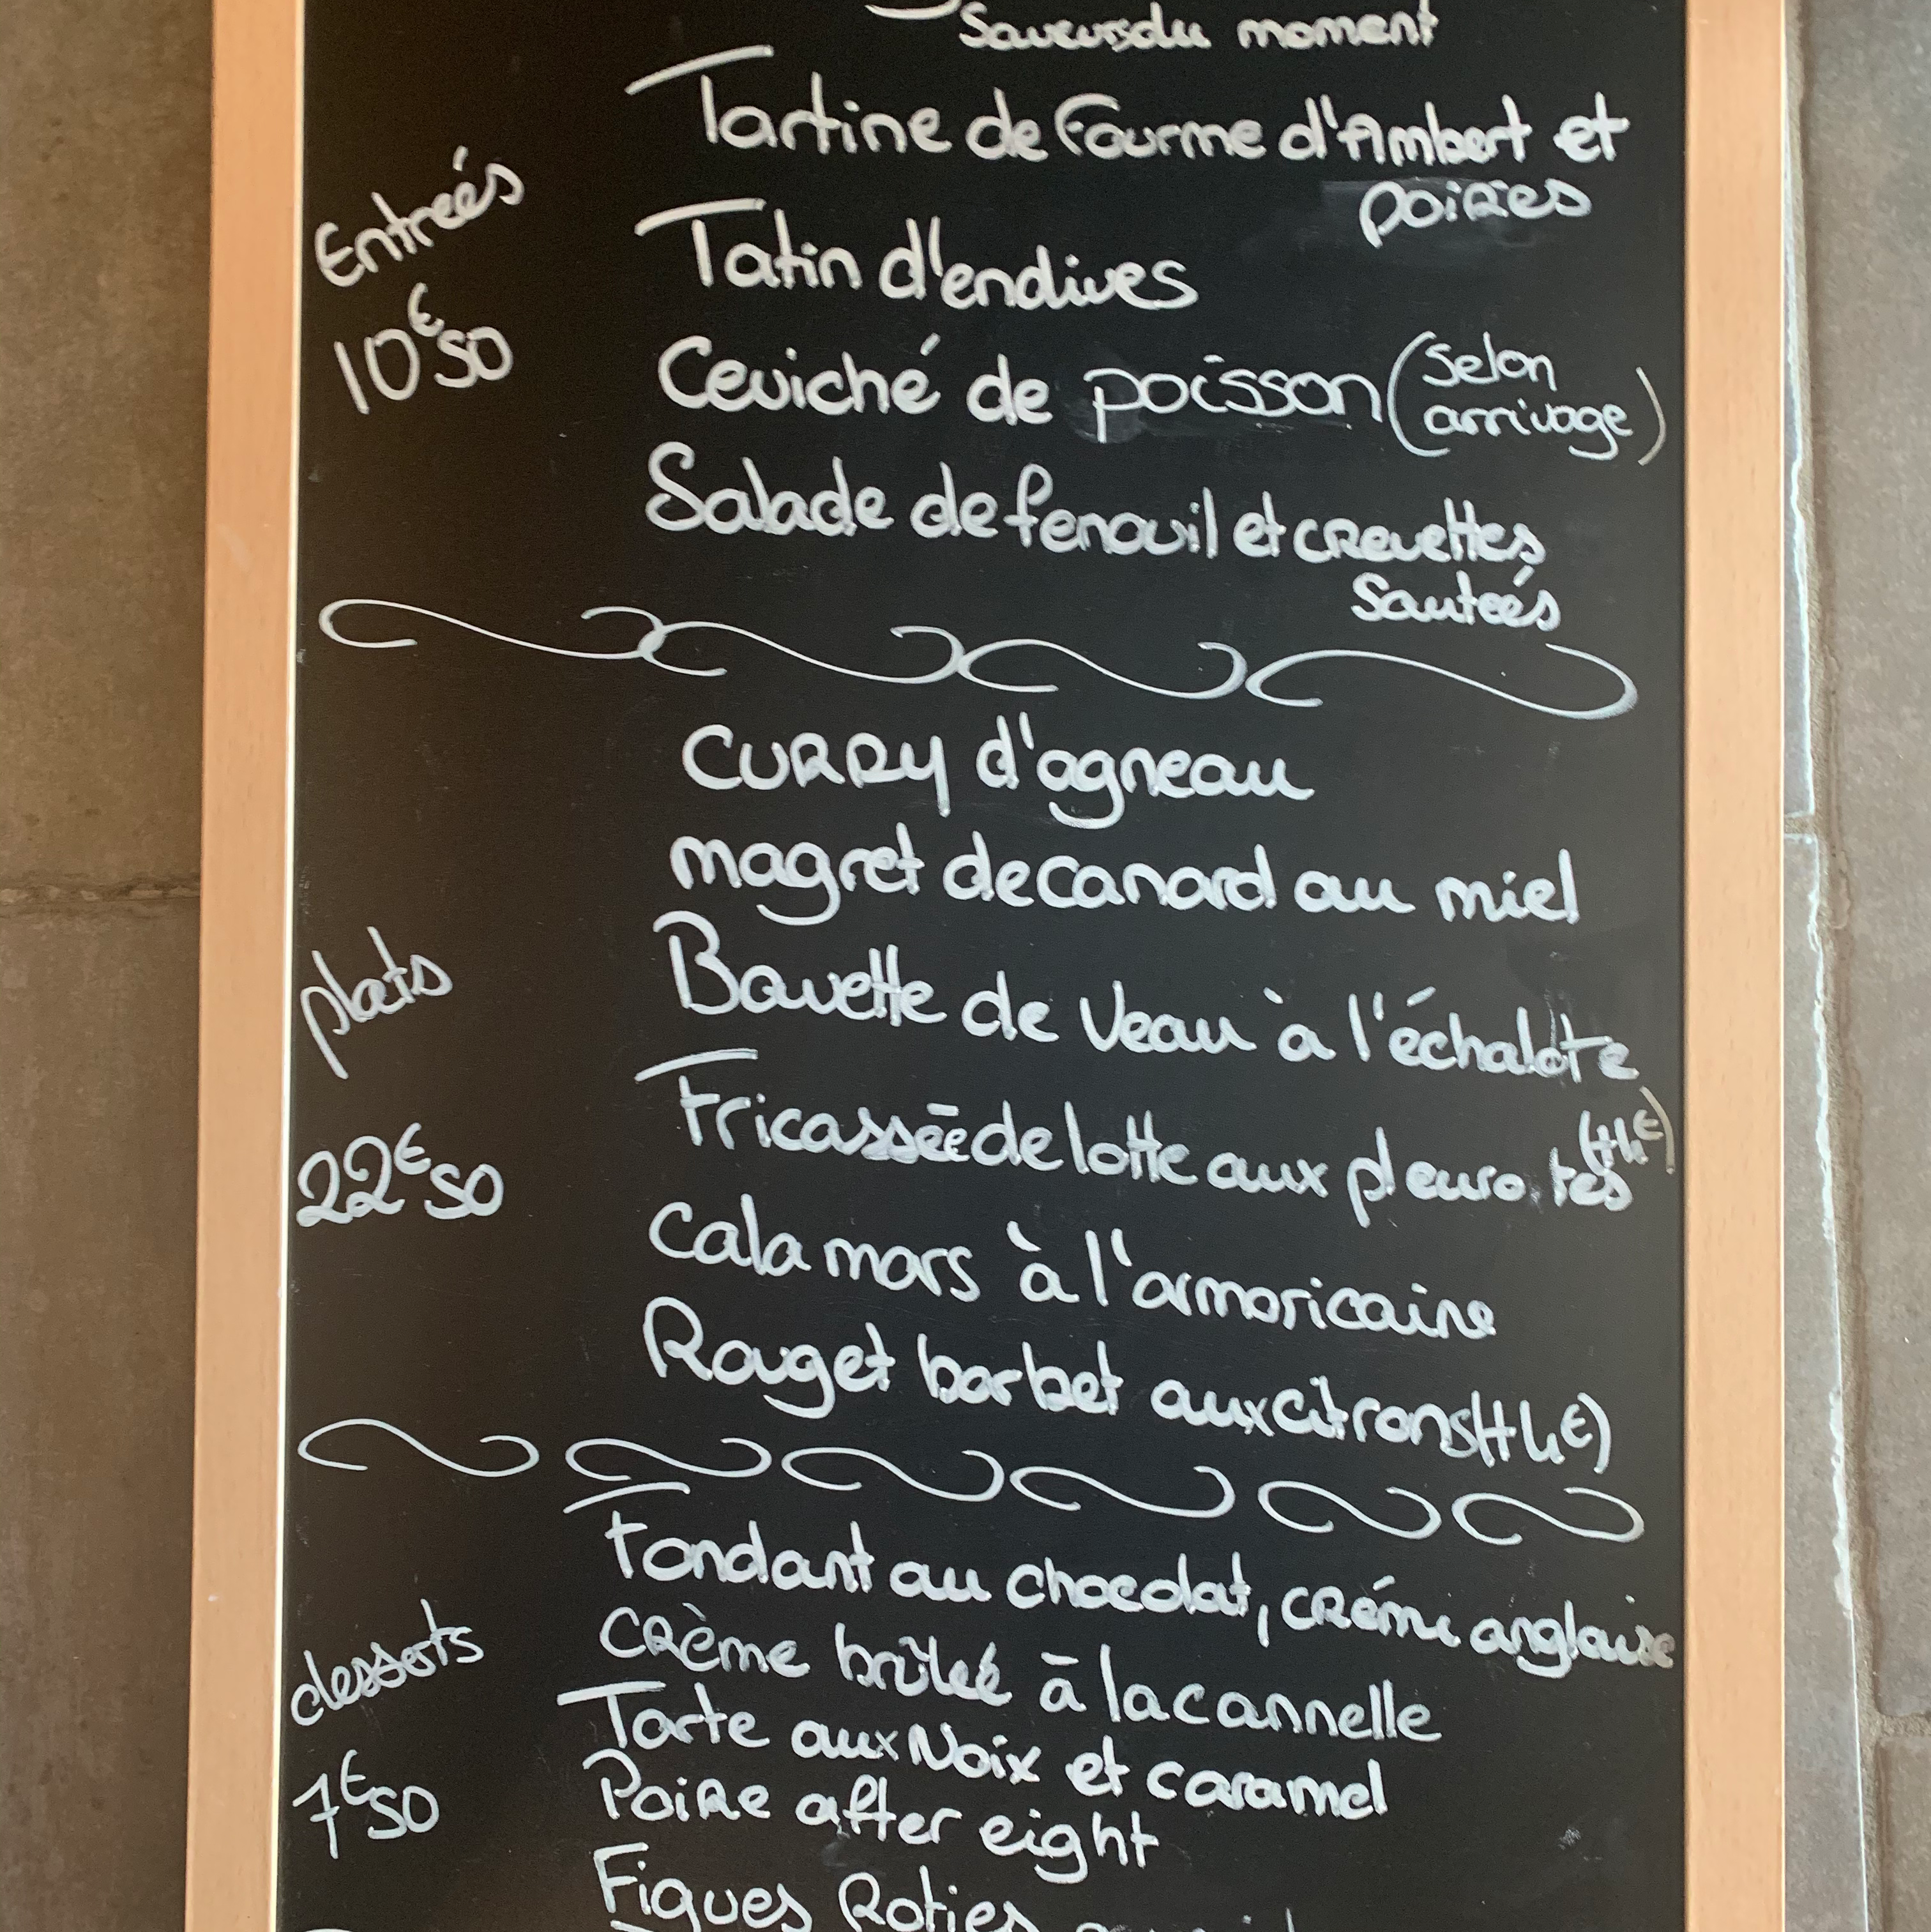 Saveurs du moment
Tartine de Fourme d'Ambert et
poires
Entreés
10€50
Tatin d'endives
Ceviché de poisson (selon
arrivage)
Salade de fenouil et crevettes
Sauteés
Curry d'agneau
magret de canard au miel
plats
22€50
Bavette de Veau à l'échalote
Fricassée de lotte aux pleurotes (+4€)
Calamars à l'armoricaine
Rouget barbet aux citrons (+4€)
desserts
7€50
Fondant au chocolat, créme anglaise
Crème brûleé à la cannelle
Tarte aux Noix et caramel
Poire after eight
Figues Roties